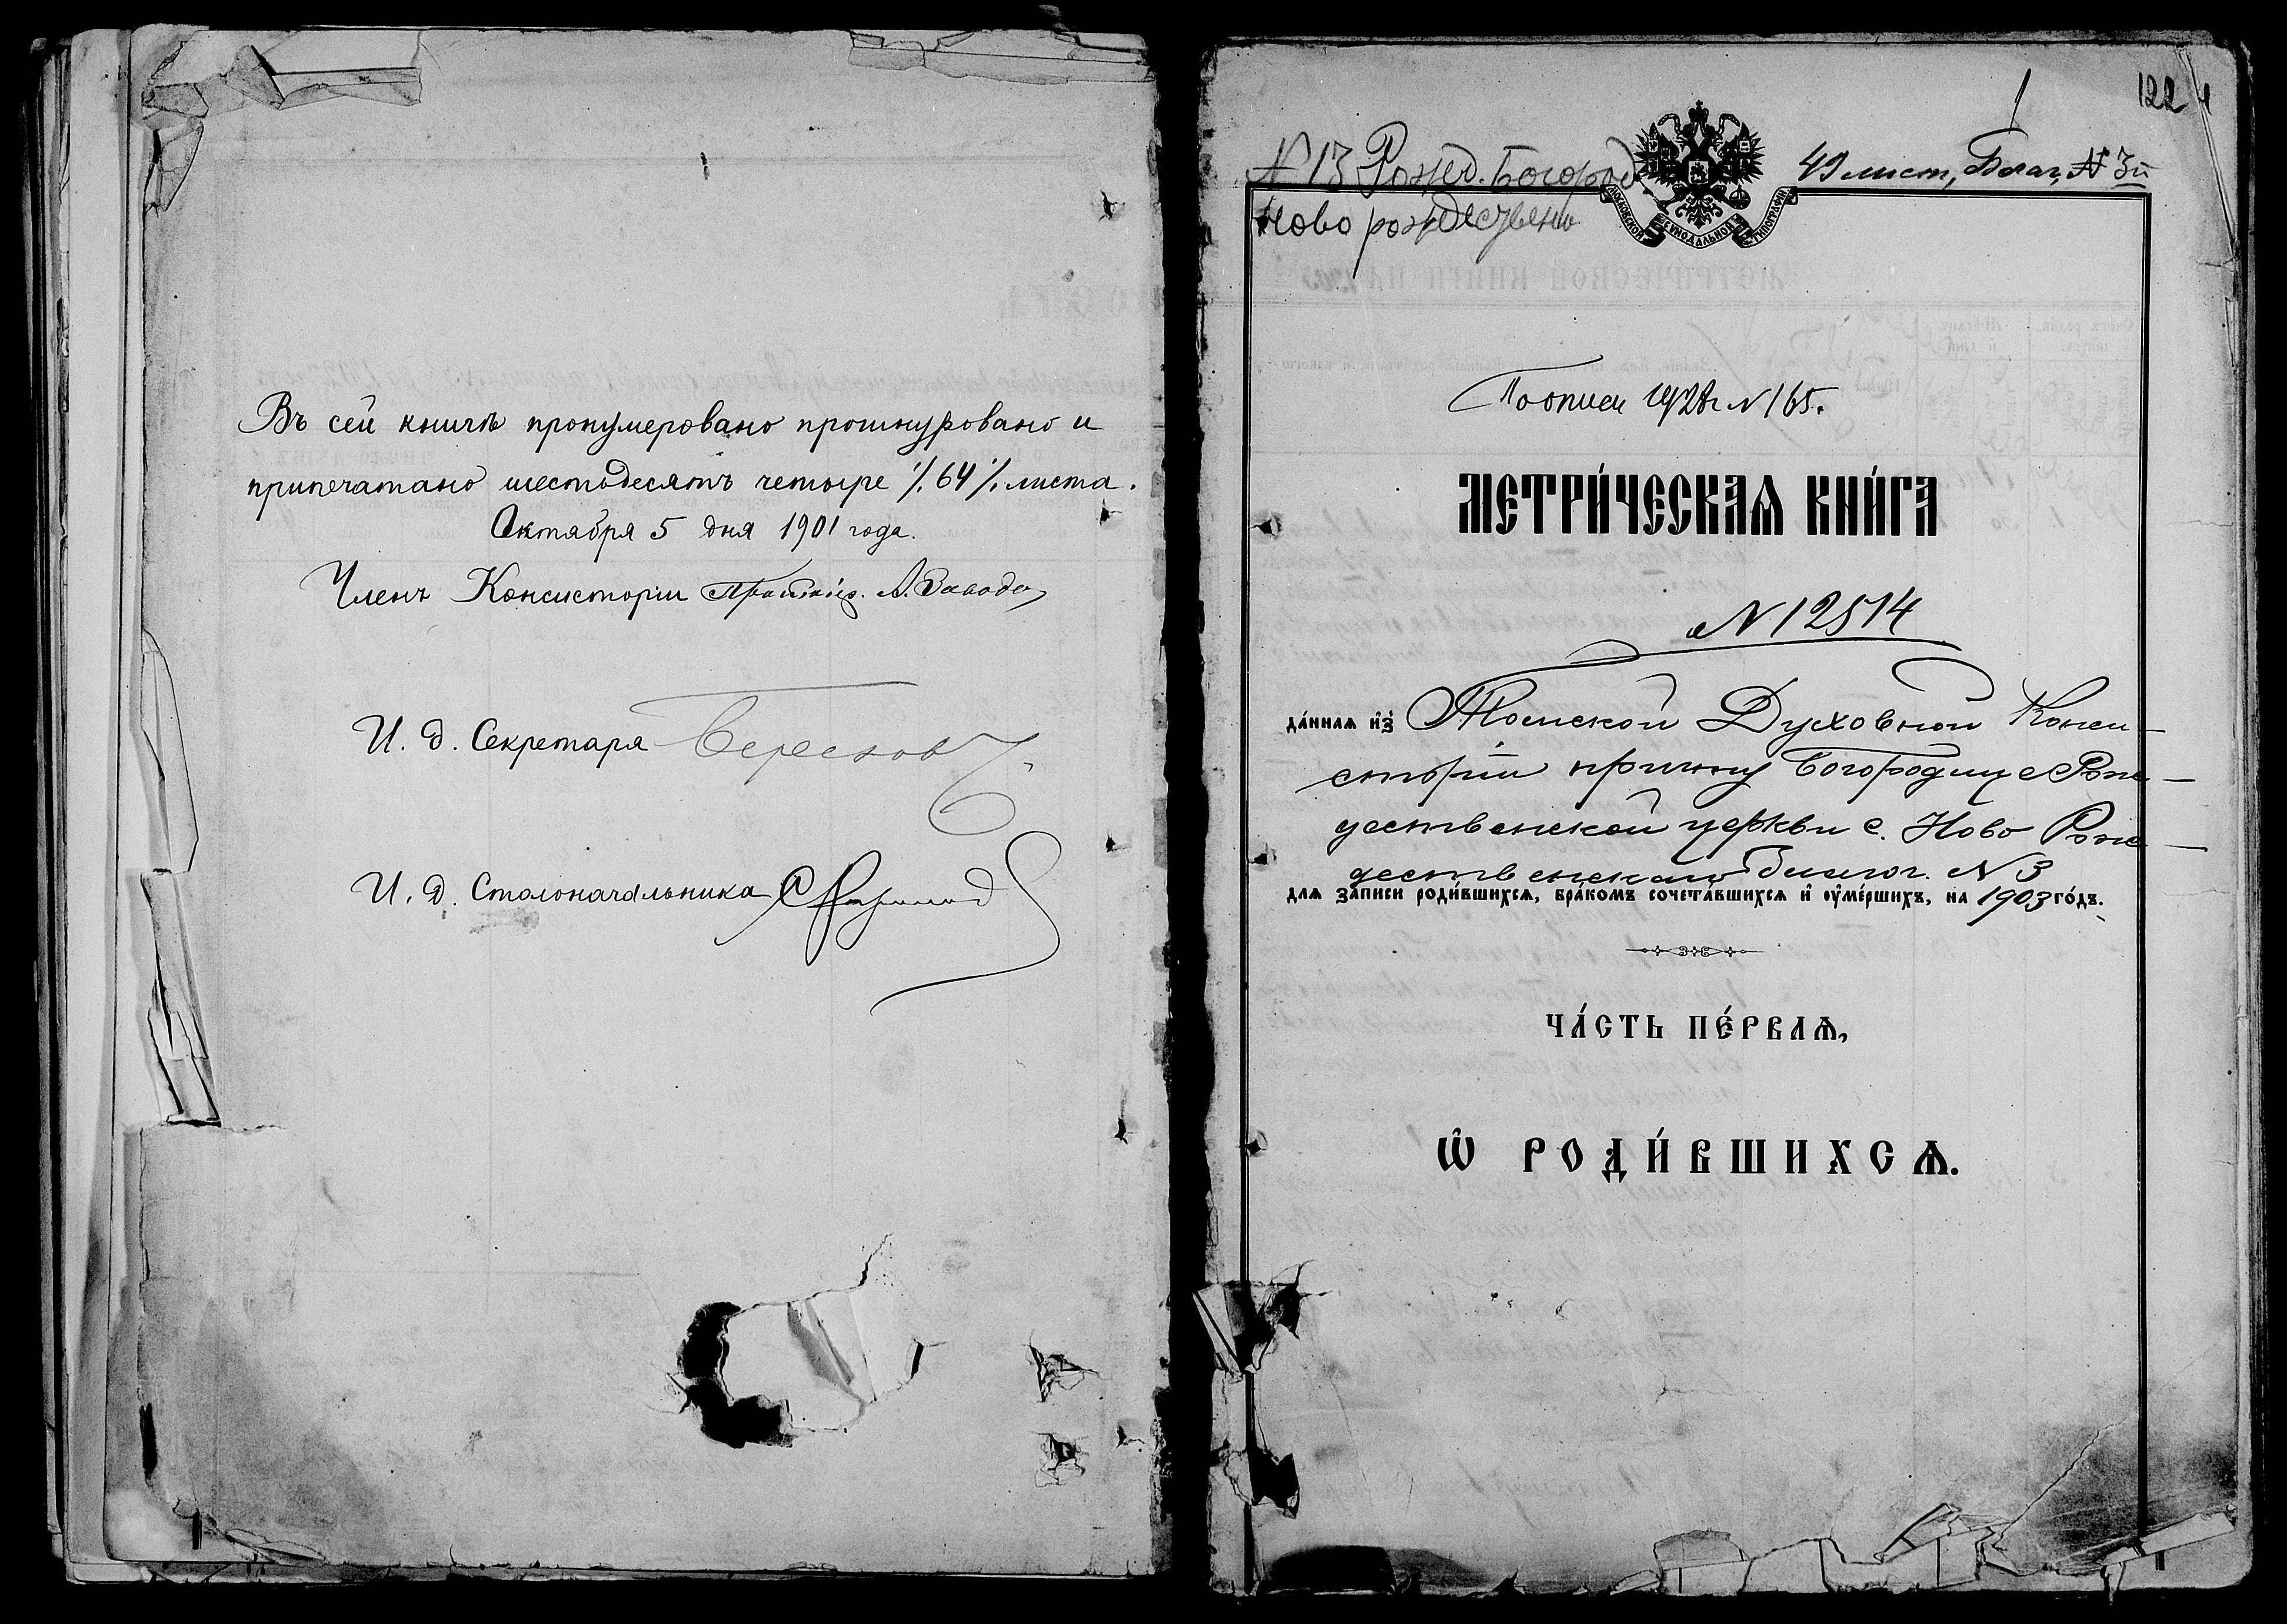 Въ сей книгѣ пронумеровано прошнуровано и
припечатано шестьдесятъ четыре ٪ 64 ٪ листа.
Октября 5 дня 1901 года.
Членъ Консисторіи А. Заводо
И. д. Секретаря
И. д. Столоначальника
1
122
№ 13 Рожд. Богород
49 лист, Благ, № 3й
Ново рождествено
МОСКОВСКОЙ СѴНОДАЛЬНОЙ ТИПОГРАФІИ
По описи 1928 г № 165.
МЕТРИ́ЧЕСКАѦ КНИ́ГА
№ 12514
да́ннаѧ и҆з̾ Томской Духовной Конси-
сторіи причту Богородице Рож-
дественской церкви с. Ново Рож-
дественскаго благоч. № 3
длѧ за́писи роди́вшихсѧ, бра́комъ сочета́вшихсѧ и҆ ᲂу҆ме́ршихъ, на 1903 го́дъ.
ЧА́СТЬ ПЕ́РВАѦ,
Ѽ РОДИ́ВШИХСѦ.